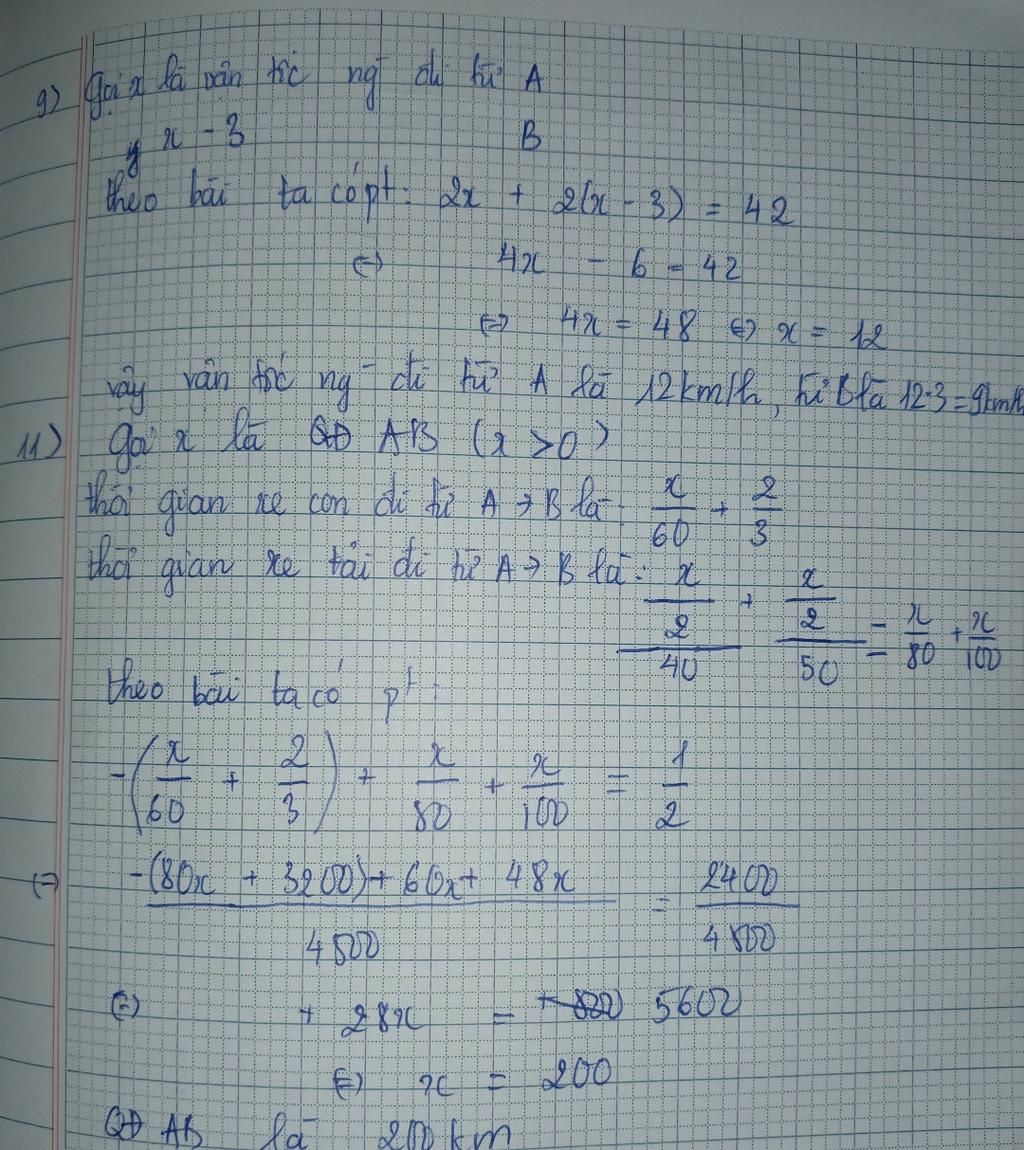 9) Gọi x là vận tốc ng~ đi từ A
x - 3 B
theo bài ta có pt: 2x + 2(x - 3) = 42
⇔ 4x - 6 = 42
⇔ 4x = 48 ⇔ x = 12
vậy vận tốc ng~ đi từ A là 12 km/h, từ B là 12-3=9km/h
11) gọi x là QĐ AB (x > 0)
thời gian xe con đi từ A → B là: x/60 + 2/3
thời gian xe tải đi từ A → B là: (x/2)/40 + (x/2)/50 = x/80 + x/100
theo bài ta có pt:
-(x/60 + 2/3) + x/80 + x/100 = 1/2
⇔ (-(80x + 3200) + 60x + 48x)/4800 = 2400/4800
⇔ + 28x = 5600
⇔ x = 200
QĐ AB là 200 km